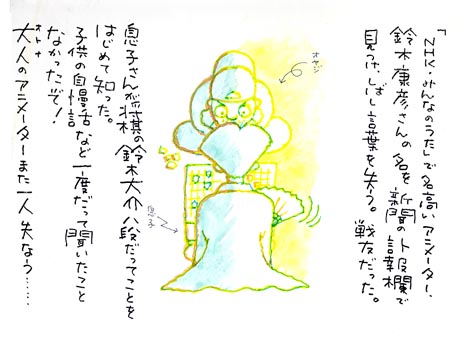 「NHK・みんなのうた」で名高いアニメーター、
鈴木康彦さんの名を新聞の訃報欄で
見つけ、しばし言葉を失う。戦友だった。
オヤジ
息子
息子さんが将棋の鈴木大介八段だってことを
はじめて知った。
子供の自慢話など一度だって聞いたこと
なかったぞ！
大人のアニメーターまた一人失なう……
オトナ